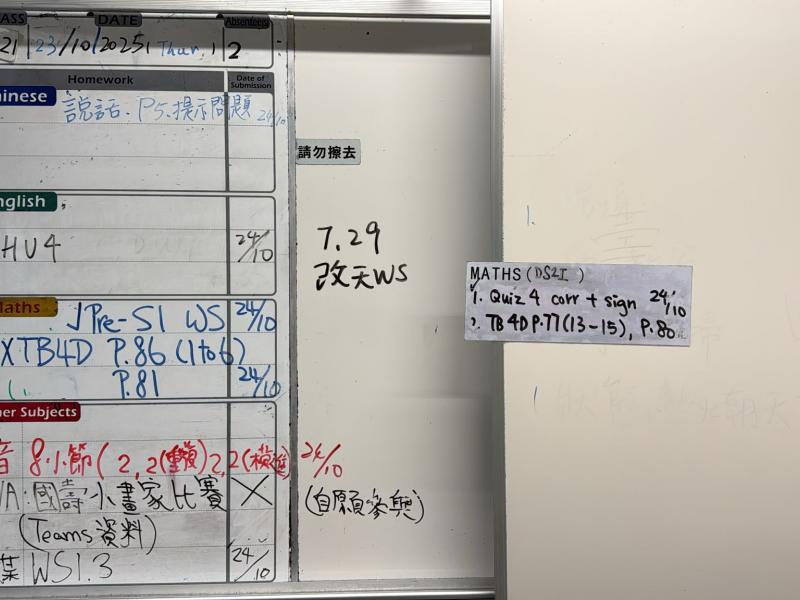 DATE
Absentees
21 23/10/2025, Thur. 2
Homework
Date of Submission
說話: P5.提示問題 24/10
請勿擦去
HU4 24/10
7.29
改天WS
MATHS (DS2I)
1. Quiz 4 corr + sign 24/10
2. TB 4D P.77 (13-15), P.80
√Pre-S1 WS 24/10
X TB4D P.86 (1 to 6)
P.81 24/10
er Subjects
音 8小節( 2, 2(重複) 2, 2(模進) 24/10
VA: 國壽小畫家比賽 X (自願參與)
(Teams 資料)
WS1.3 24/10